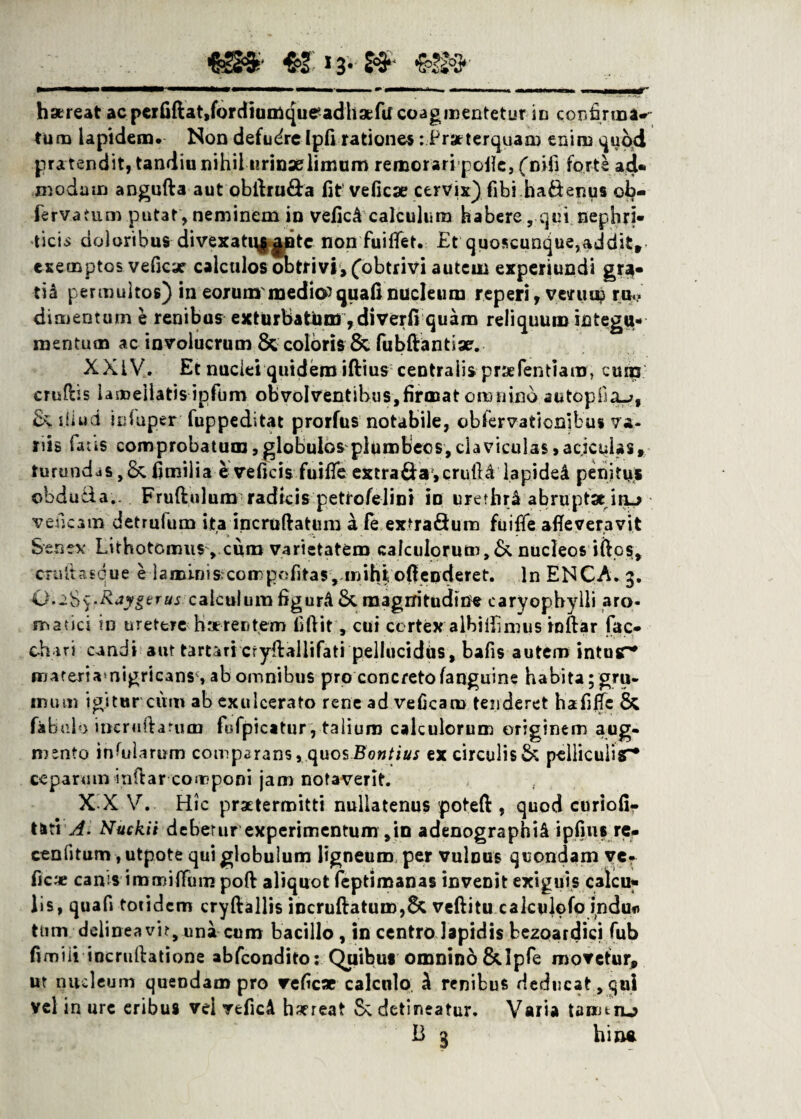 13.
hæreat ac persistat, fordiumque adhæsu coagmentetur in confirma-
tum lapidem. Non defuêre Ipsi rationes: Præterquam enim quòd
prætendit, tandiu nihil urinæ limum remorari posse, (nisi fortè ad-
modum angusta aut obstructa sit vesicæ cervix) sibi hactenus ob-
servatum putat, neminem in vesicâ calculum habere, qui nephri-
ticis doloribus divexatus ante non fuisset. Et quoscunque, addit,
exemptos vesicæ calculos obtrivi, (obtrivi autem experiundi gra-
tiâ permultos) in eorum medio quasi nucleum reperi, verum ru-
dimentum è renibus exturbatum, diversi quàm reliquum integu-
mentum ac involucrum & coloris & substantiæ.
XXIV. Et nuclei quidem istius centralis præsentiam, cum
crustis lamellatis ipsum obvolventibus, firmat omninò autopsia,
& illud insuper suppeditat prorsus notabile, observationibus va-
riis satis comprobatum, globulos plumbeos, claviculas, aciculas,
turundas, & similia è vesicis fuisse extracta, crustâ lapideâ penitus
obducta. Frustulum radicis petroselini in urethrâ abruptæ in
vesicam detrusum ita incrustatum à se extractum fuisse asseveravit
Senex Lithotomus, cùm varietatem calculorum, & nucleos istos,
crustasque è laminis compositas, mihi ostenderet. In ENCA. 3.
O. 285. Raygerus calculum figurâ & magnitudine caryophylli aro-
matici in uretere hærentem sistit, cui cortex albissimus instar sac-
chari candi aut tartari crystallisati pellucidus, basis autem intus
materia nigricans, ab omnibus pro concreto sanguine habita; gru-
mum igitur cùm ab exulcerato rene ad vesicam tenderet hæsisse &
sabulo incrustatum suspicatur, talium calculorum originem aug-
mento insularum comparans, quos Bontius ex circulis & pelliculis
ceparum instar componi jam notaverit.
XXV. Hîc prætermitti nullatenus potest, quod curiosi-
tati A. Nuckii debetur experimentum, in adenographiâ ipsius re-
censitum, utpote qui globulum ligneum per vulnus quondam ve-
sicæ canis immissum post aliquot septimanas invenit exiguis calcu-
lis, quasi totidem crystallis incrustatum, & vestitu calculoso indu-
tum delineavit, unà cum bacillo, in centro lapidis bezoardici sub
simili incrustatione abscondito: Quibus omninò & Ipse movetur,
ut nucleum quendam pro vesicæ calculo à renibus deducat, qui
vel in ureteribus vel vesicâ hæreat & detineatur. Varia tamen
B 3 hinc